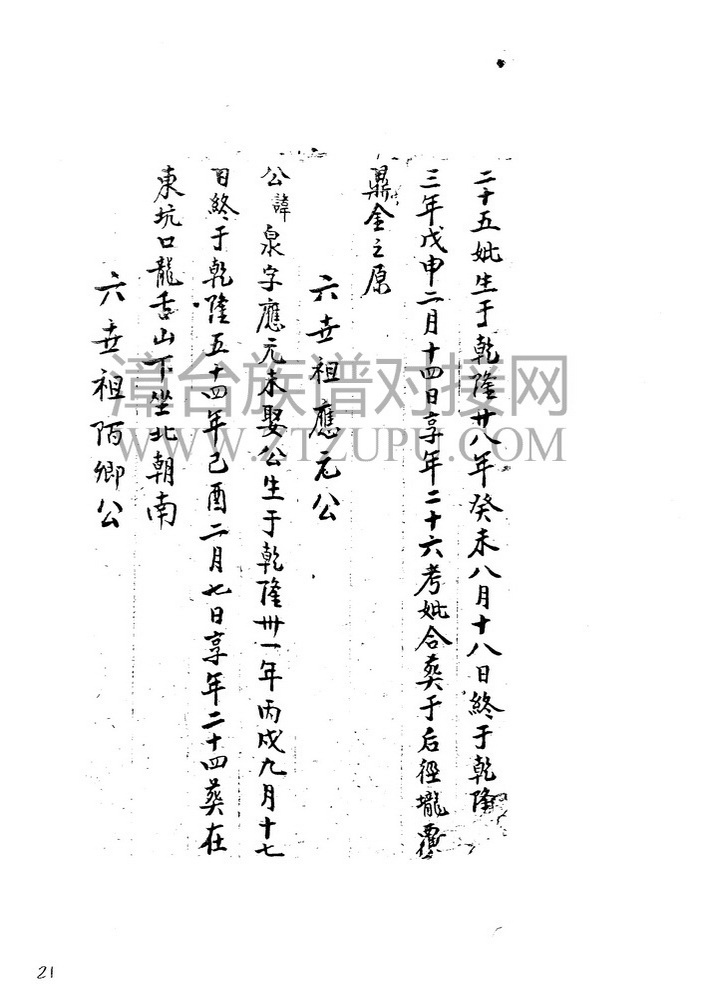 二十五妣生于乾隆卅八年癸未八月十八日終于乾隆
三年戊申二月十四日享年二十六考妣合葬于后徑壠
鼎金之原
六世祖應元公
公諱泉字應元未娶公生于乾隆卅一年丙戍九月十七
日終于乾隆五十四年己酉二月七日享年二十四葬在
東坑口龍舌山下坐北朝南
六世祖陌卿公
漳台族谱对接网
WWW.ZTZUPU.COM
21